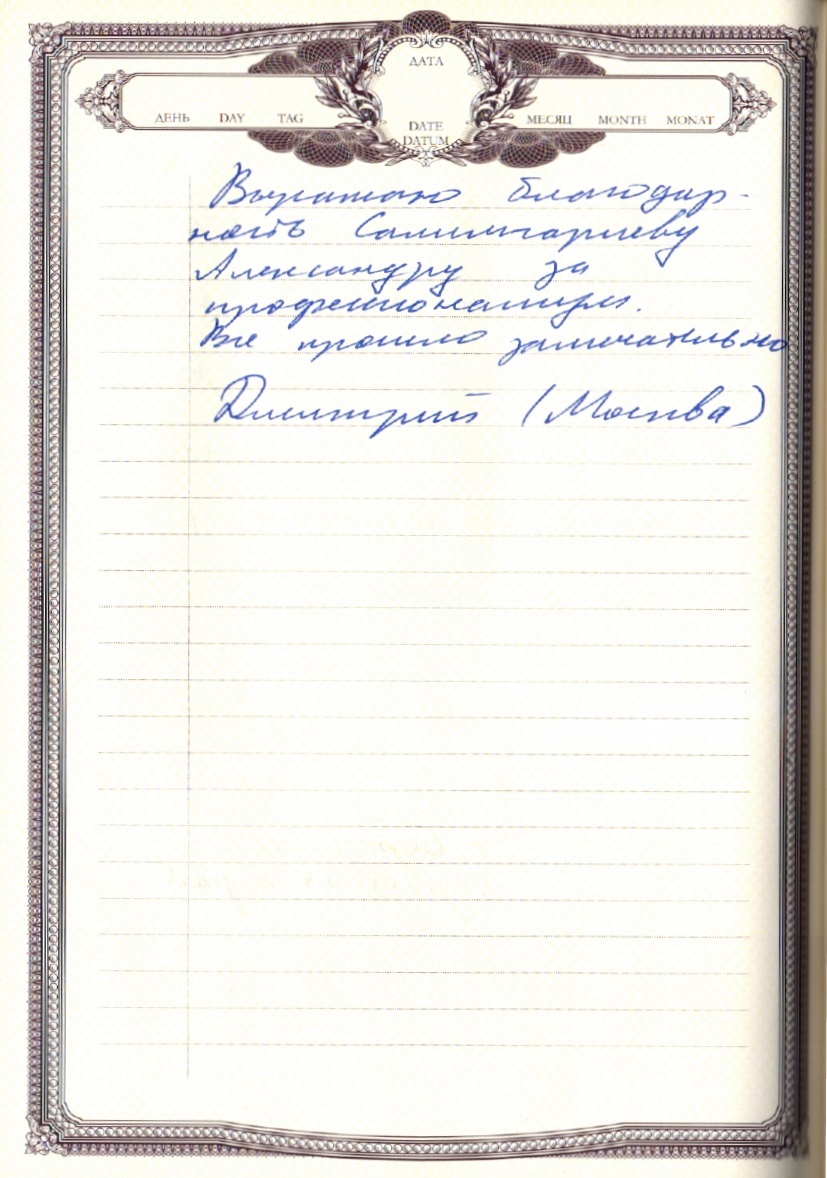 ДАТА
ДЕНЬ DAY TAG DATE МЕСЯЦ MONTH MONAT
DATUM
Выражаю благодар-
ность Салимгариеву
Александру за
профессионализм.
Все прошло замечательно
Дмитрий (Москва)